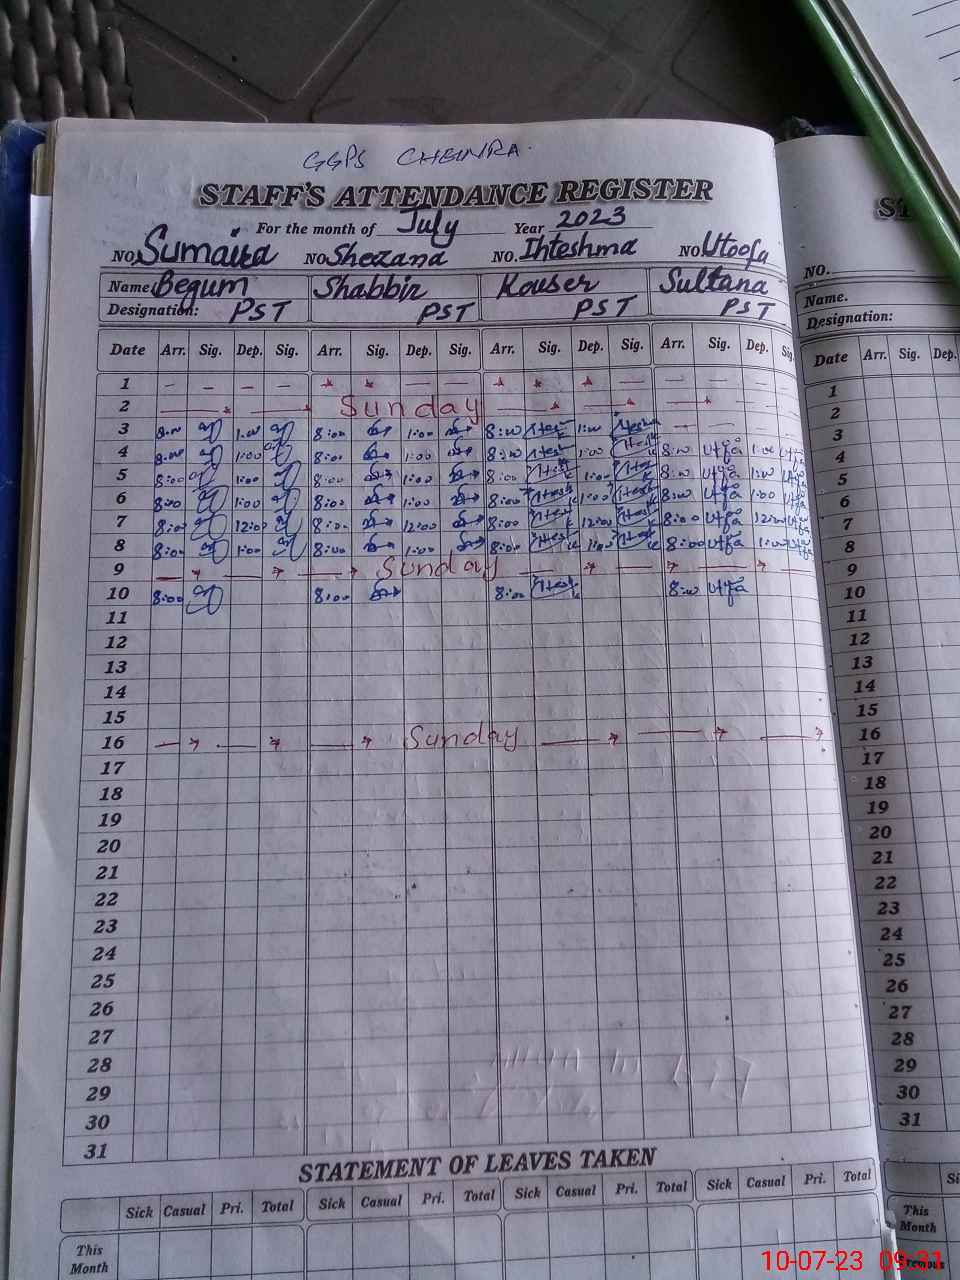 GGPS CHEINRA.
STAFF'S ATTENDANCE REGISTER
For the month of July Year 2023
NO. Sumaira NO. Shezana NO. Ihteshma NO. Utoofa
Name. Begum Shabbir Kouser Sultana
Designation: PST PST PST PST
Date Arr. Sig. Dep. Sig. Arr. Sig. Dep. Sig. Arr. Sig. Dep. Sig. Arr. Sig. Dep. Sig.
1
2 Sunday
3 8:00 1:00 8:00 1:00 8:00 1:00
4 8:00 1:00 8:00 1:00 8:00 1:00 8:00 Utfa 1:00 Utfa
5 8:00 1:00 8:00 1:00 8:00 1:00 8:00 Utfa 1:00 Utfa
6 8:00 1:00 8:00 1:00 8:00 1:00 8:00 Utfa 1:00 Utfa
7 8:00 12:00 8:00 12:00 8:00 12:00 8:00 Utfa 12:00 Utfa
8 8:00 1:00 8:00 1:00 8:00 1:00 8:00 Utfa 1:00 Utfa
9 Sunday
10 8:00 8:00 8:00 8:00 Utfa
11
12
13
14
15
16 Sunday
17
18
19
20
21
22
23
24
25
26
27
28
29
30
31
STATEMENT OF LEAVES TAKEN
Sick Casual Pri. Total Sick Casual Pri. Total Sick Casual Pri. Total Sick Casual Pri. Total
This
Month
ST
NO.
Name.
Designation:
Date Arr. Sig. Dep.
1
2
3
4
5
6
7
8
9
10
11
12
13
14
15
16
17
18
19
20
21
22
23
24
25
26
27
28
29
30
31
Si
This
Month
10-07-23 09:31